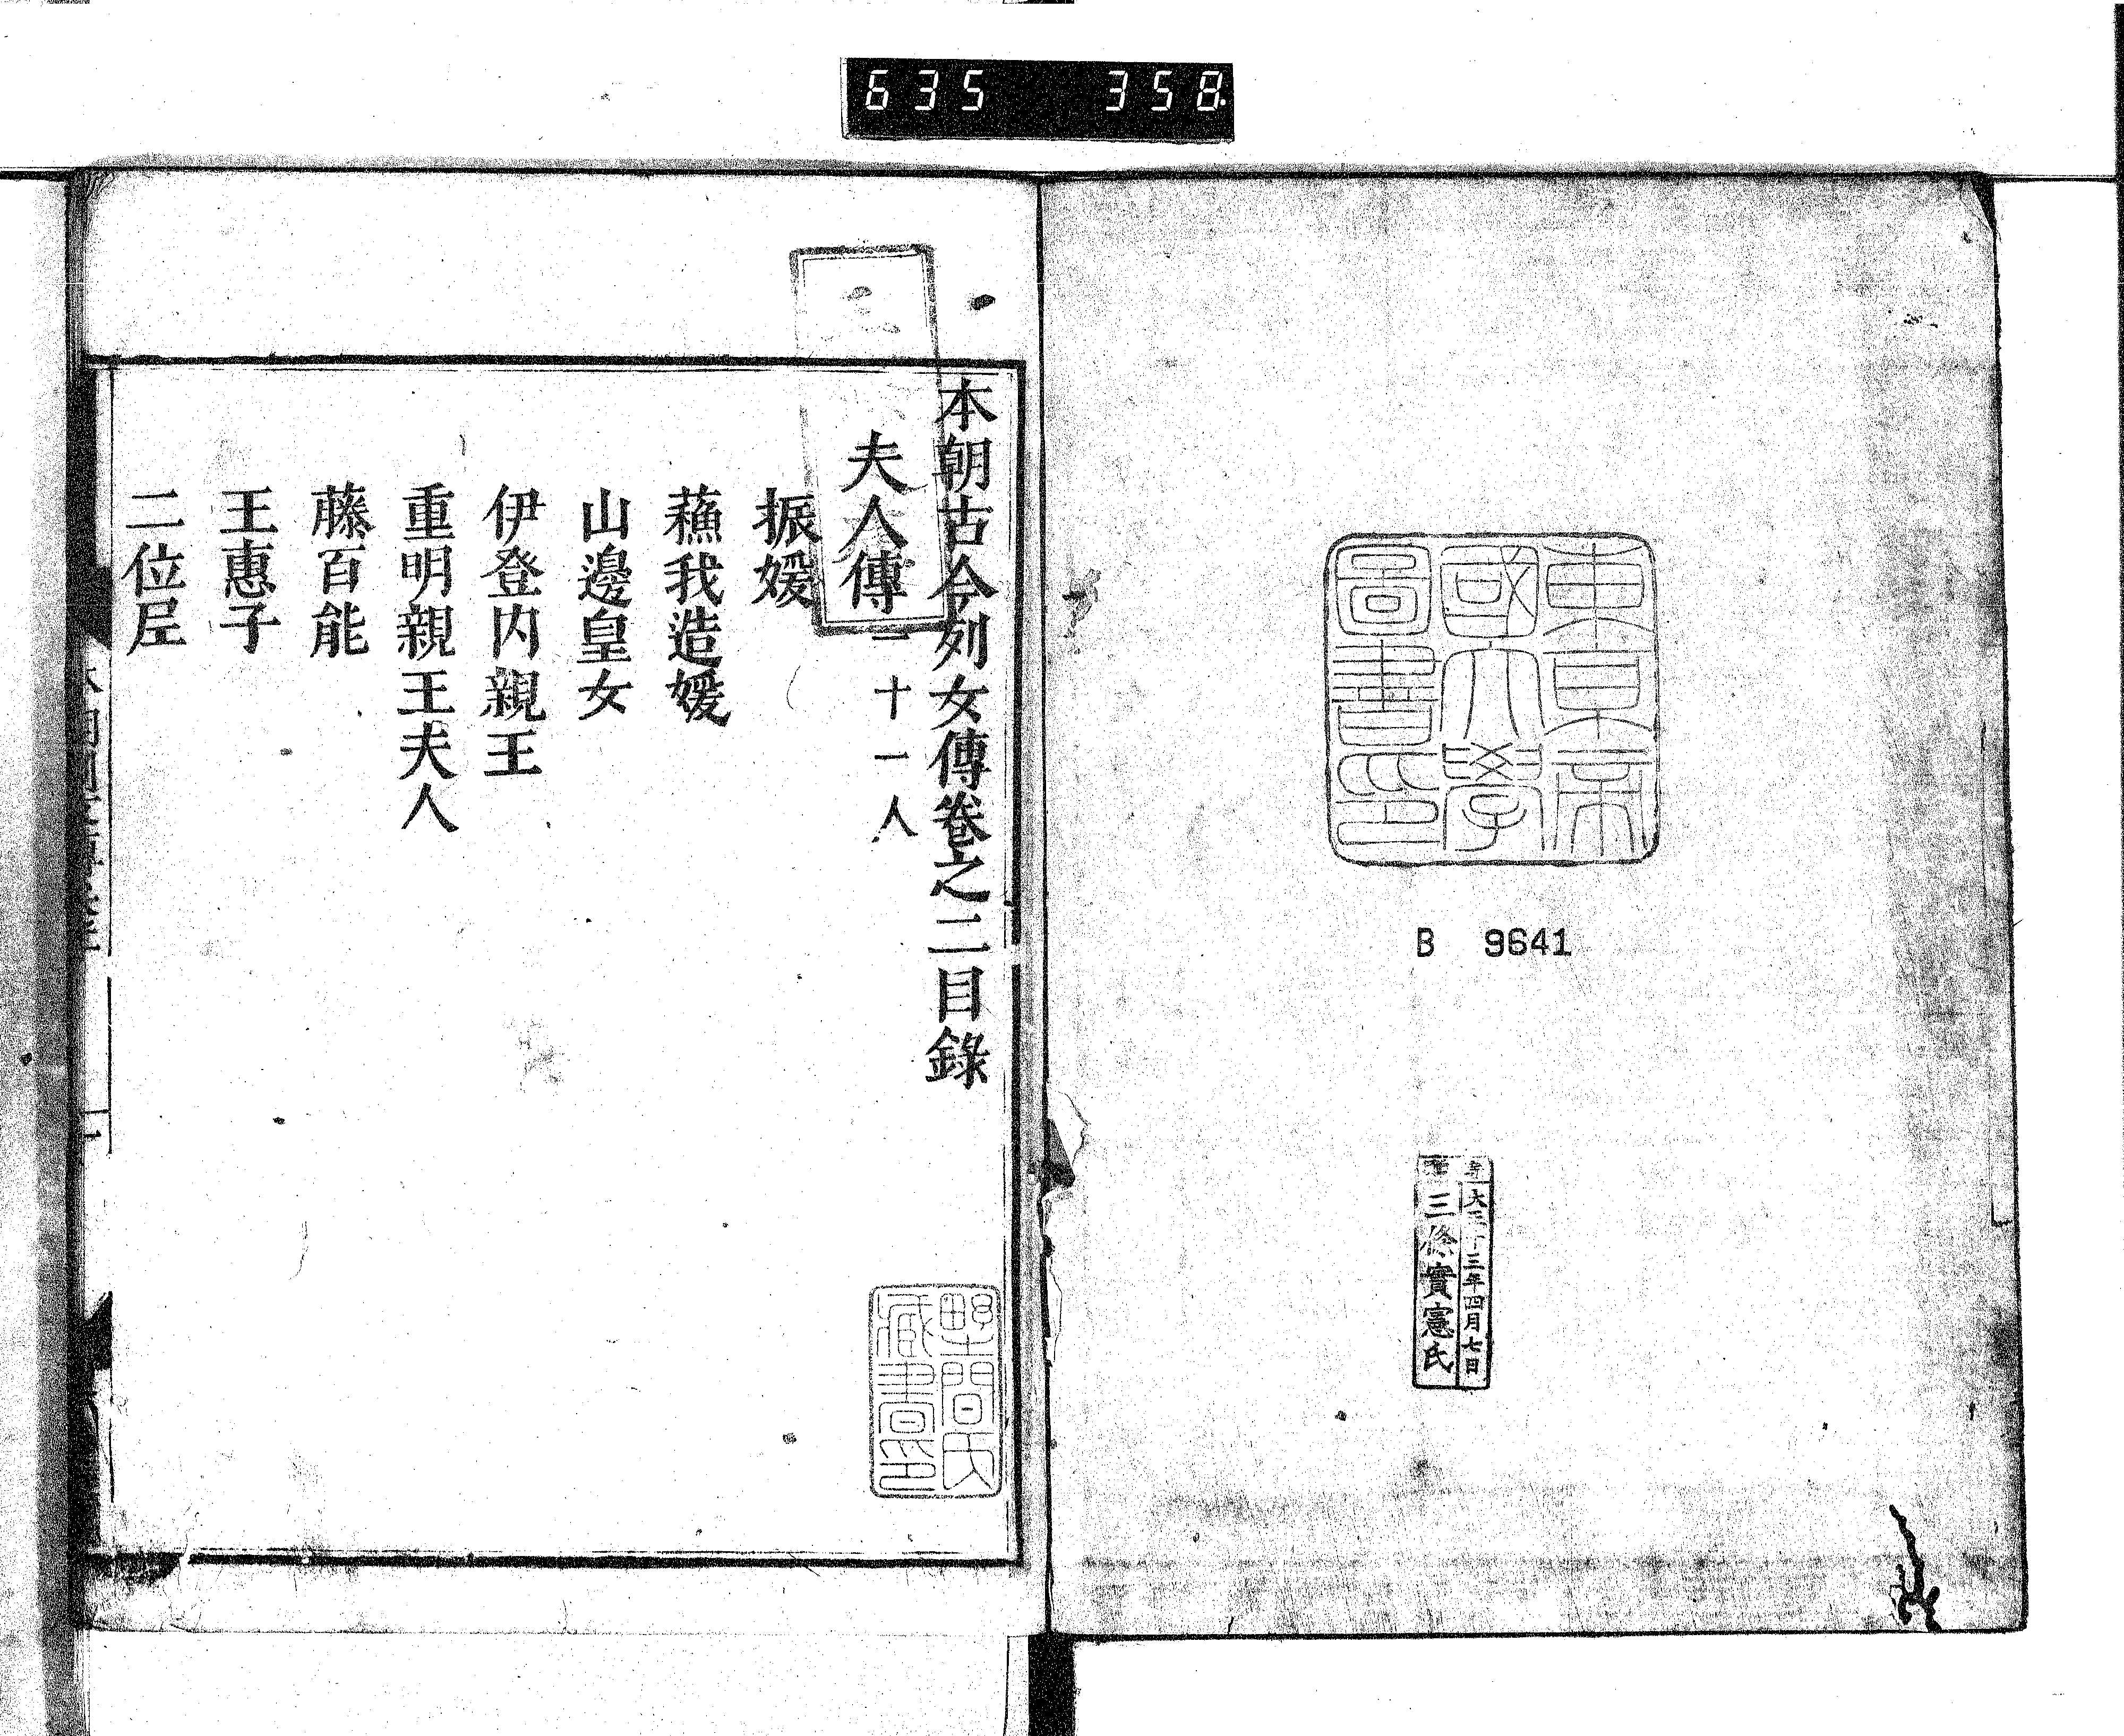 635 358
東京帝
國大學
圖書印
B 9641
三條實憲氏
本朝古今列女傳卷之二目錄
夫人傳 二十一人
振媛
蘓我造媛
山邊皇女
伊登内親王
重明親王夫人
藤百能
王惠子
二位尼
野間氏
藏書印